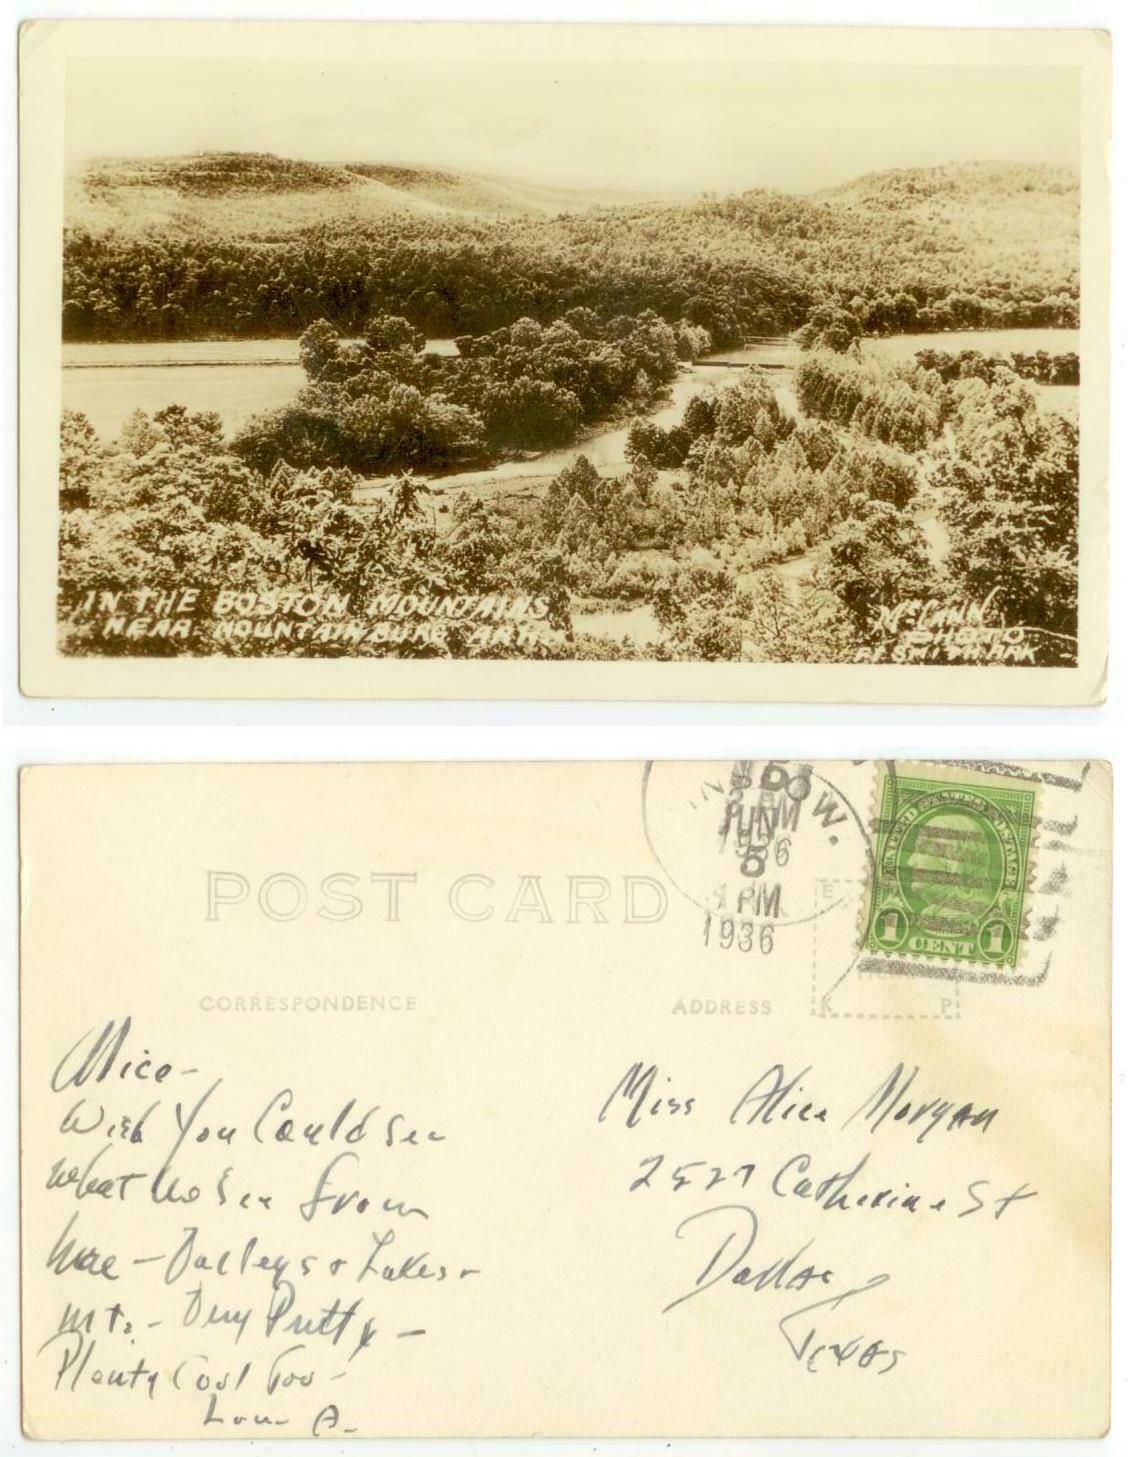 IN THE BOSTON MOUNTAINS
NEAR MOUNTAINBURG ARK.
McCANN
PHOTO
FT SMITH. ARK
POST CARD
CORRESPONDENCE
ADDRESS
E
K P
INSLOW.
JUN
5
1 PM
1936
UNITED STATES POSTAGE
1 CENT 1
Alice-
Wish You Could See
What We See from
here - Valleys & Lakes -
Mts. - Very Pretty -
Plenty Cool Too -
Lou A.
Miss Alice Morgan
2527 Catherine St
Dallas
Texas